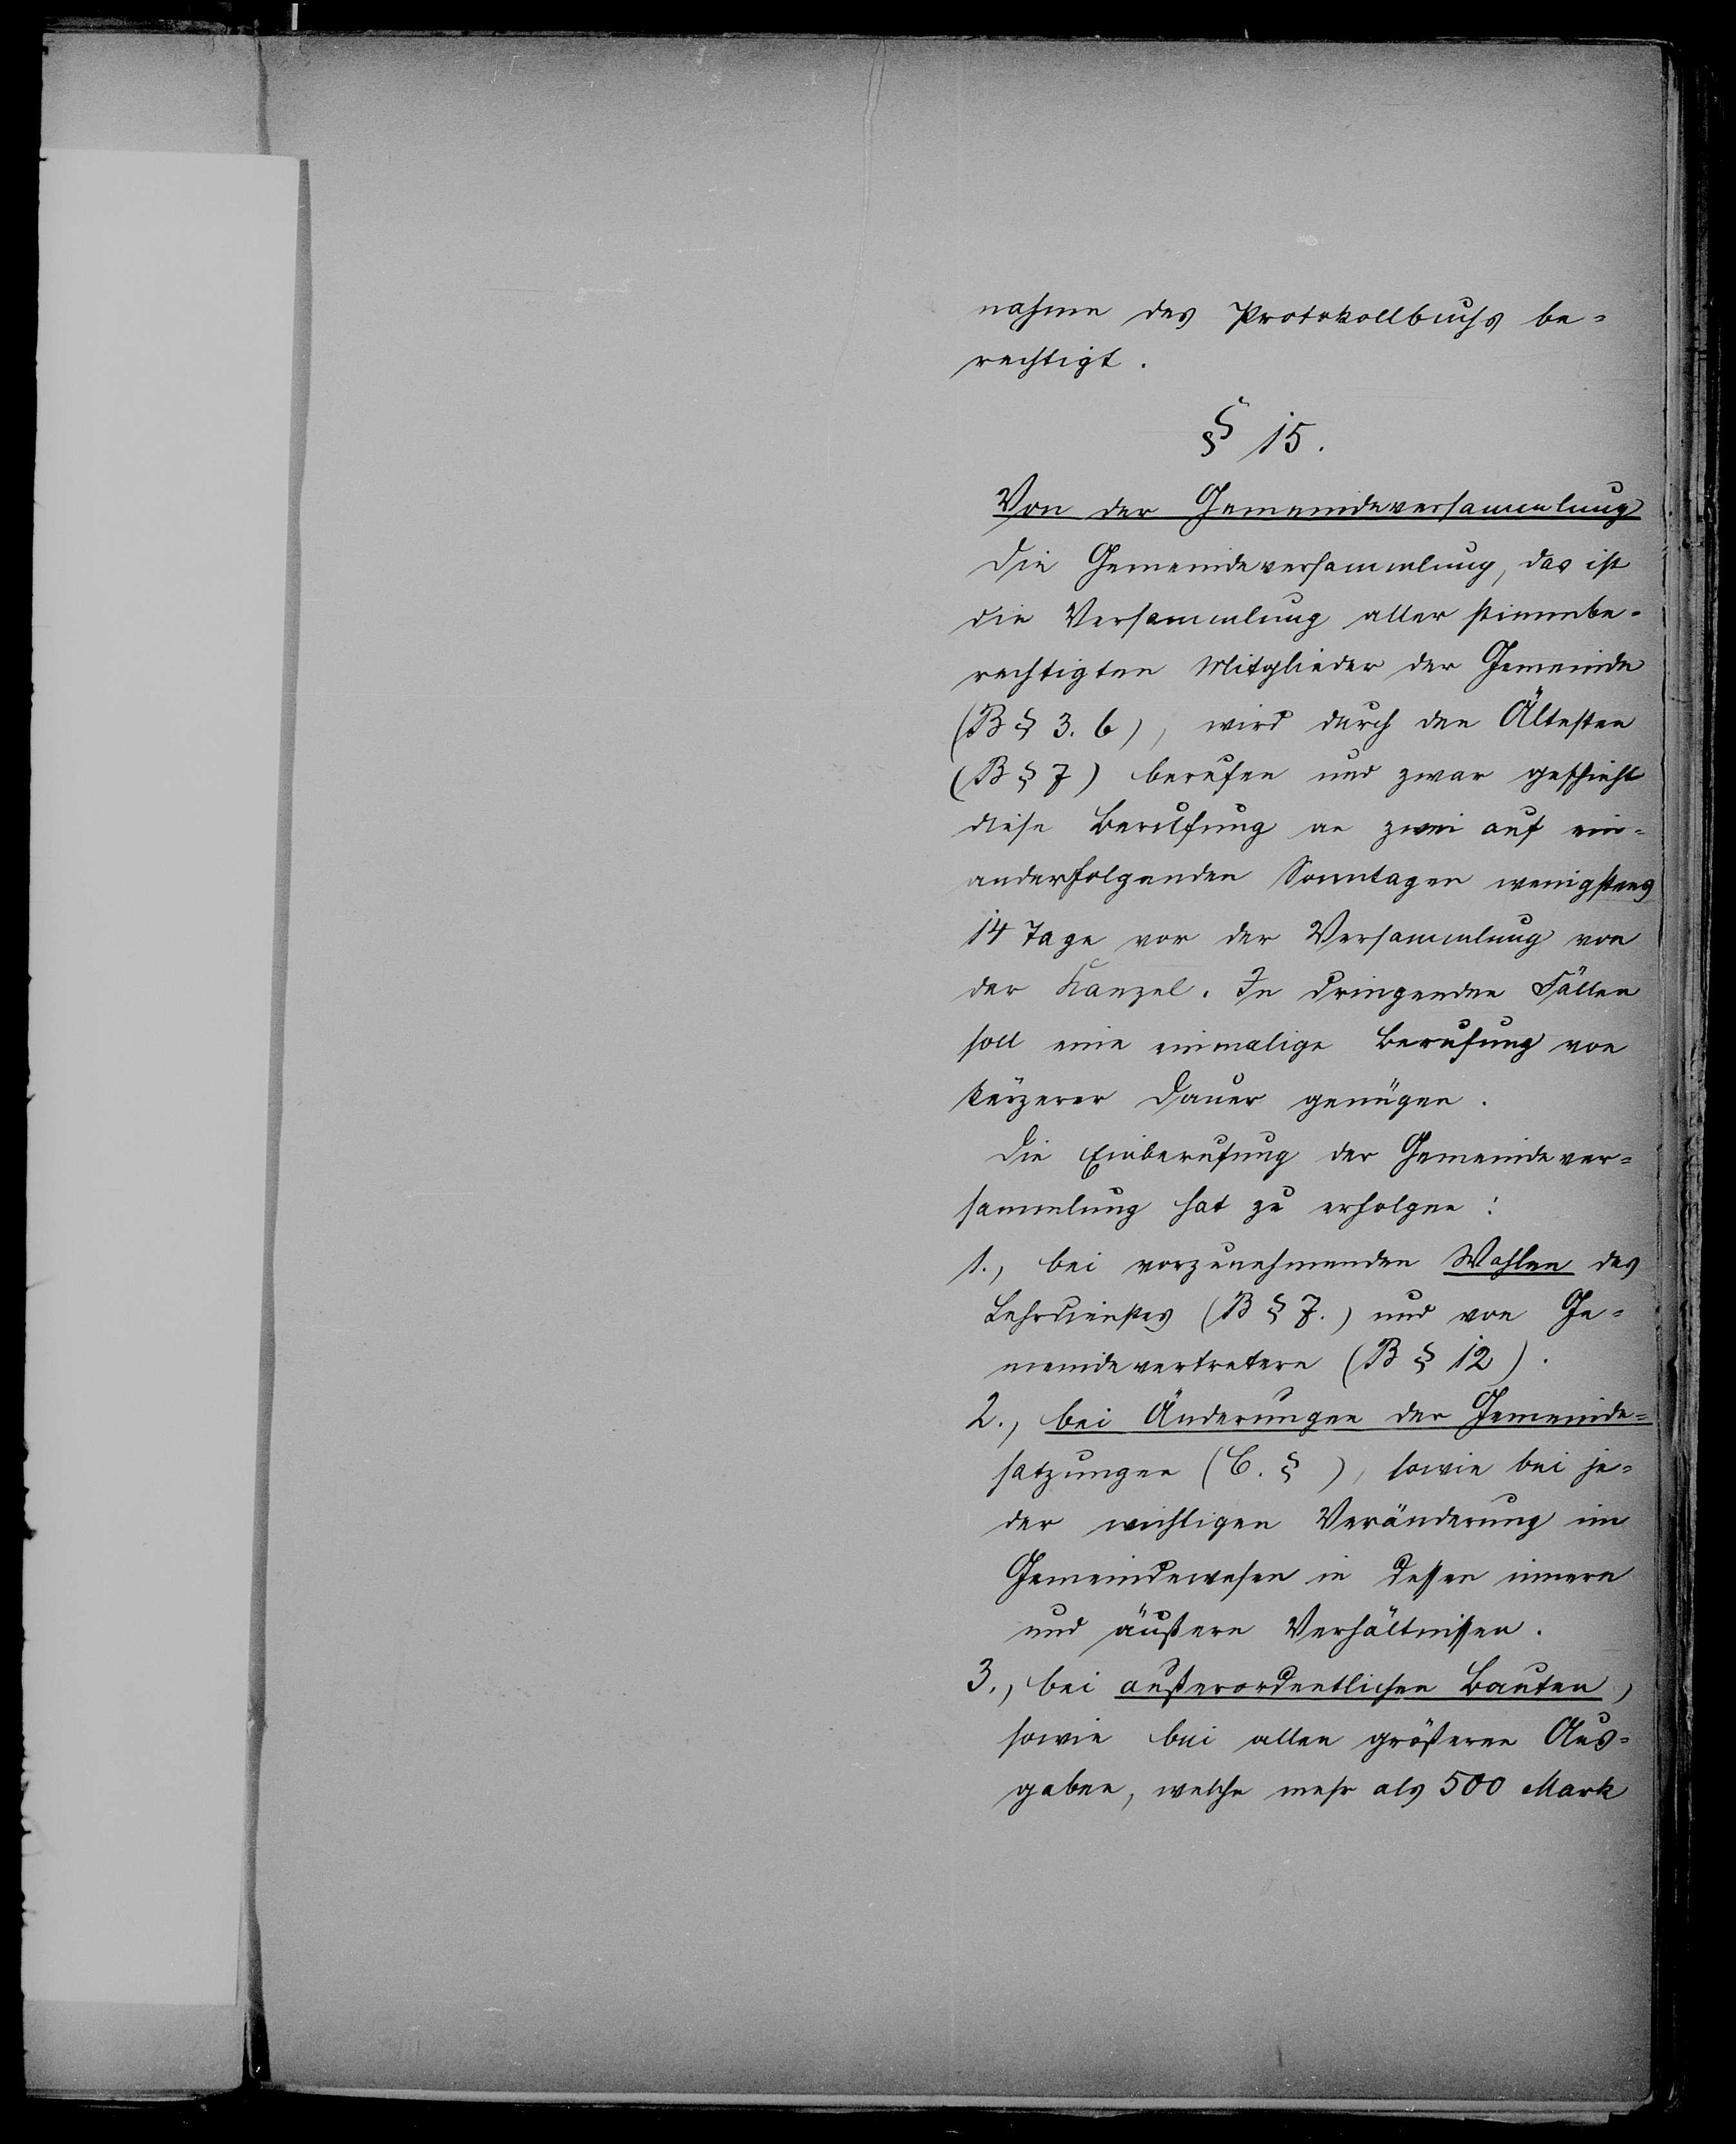 nahme des Protokollbuchs be-
rechtigt.
§ 15.
Von der Gemeindeversammlung
Die Gemeindeversammlung, das ist
die Versammlung aller stimmbe-
rechtigten Mitglieder der Gemeinde
(B § 3. 6), wird durch den Ältesten
(B § 7) berufen und zwar geschieht
diese Berufung an zwei auf ein-
anderfolgenden Sonntagen wenigstens
14 Tage vor der Versammlung von
der Kanzel. In dringenden Fällen
soll eine einmalige Berufung von
kürzerer Dauer genügen.
Die Einberufung der Gemeindever-
sammlung hat zu erfolgen:
1., bei vorzunehmenden Wahlen des
Lehrdienstes (B § 7.) und von Ge-
meindevertretern (B § 12).
2., bei Änderungen der Gemeinde-
satzungen (C. § ), sowie bei je-
der wichtigen Veränderung im
Gemeindewesen in dessen innern
und äußern Verhältnissen.
3., bei außerordentlichen Bauten,
sowie bei allen größeren Aus-
gaben, welche mehr als 500 Mark